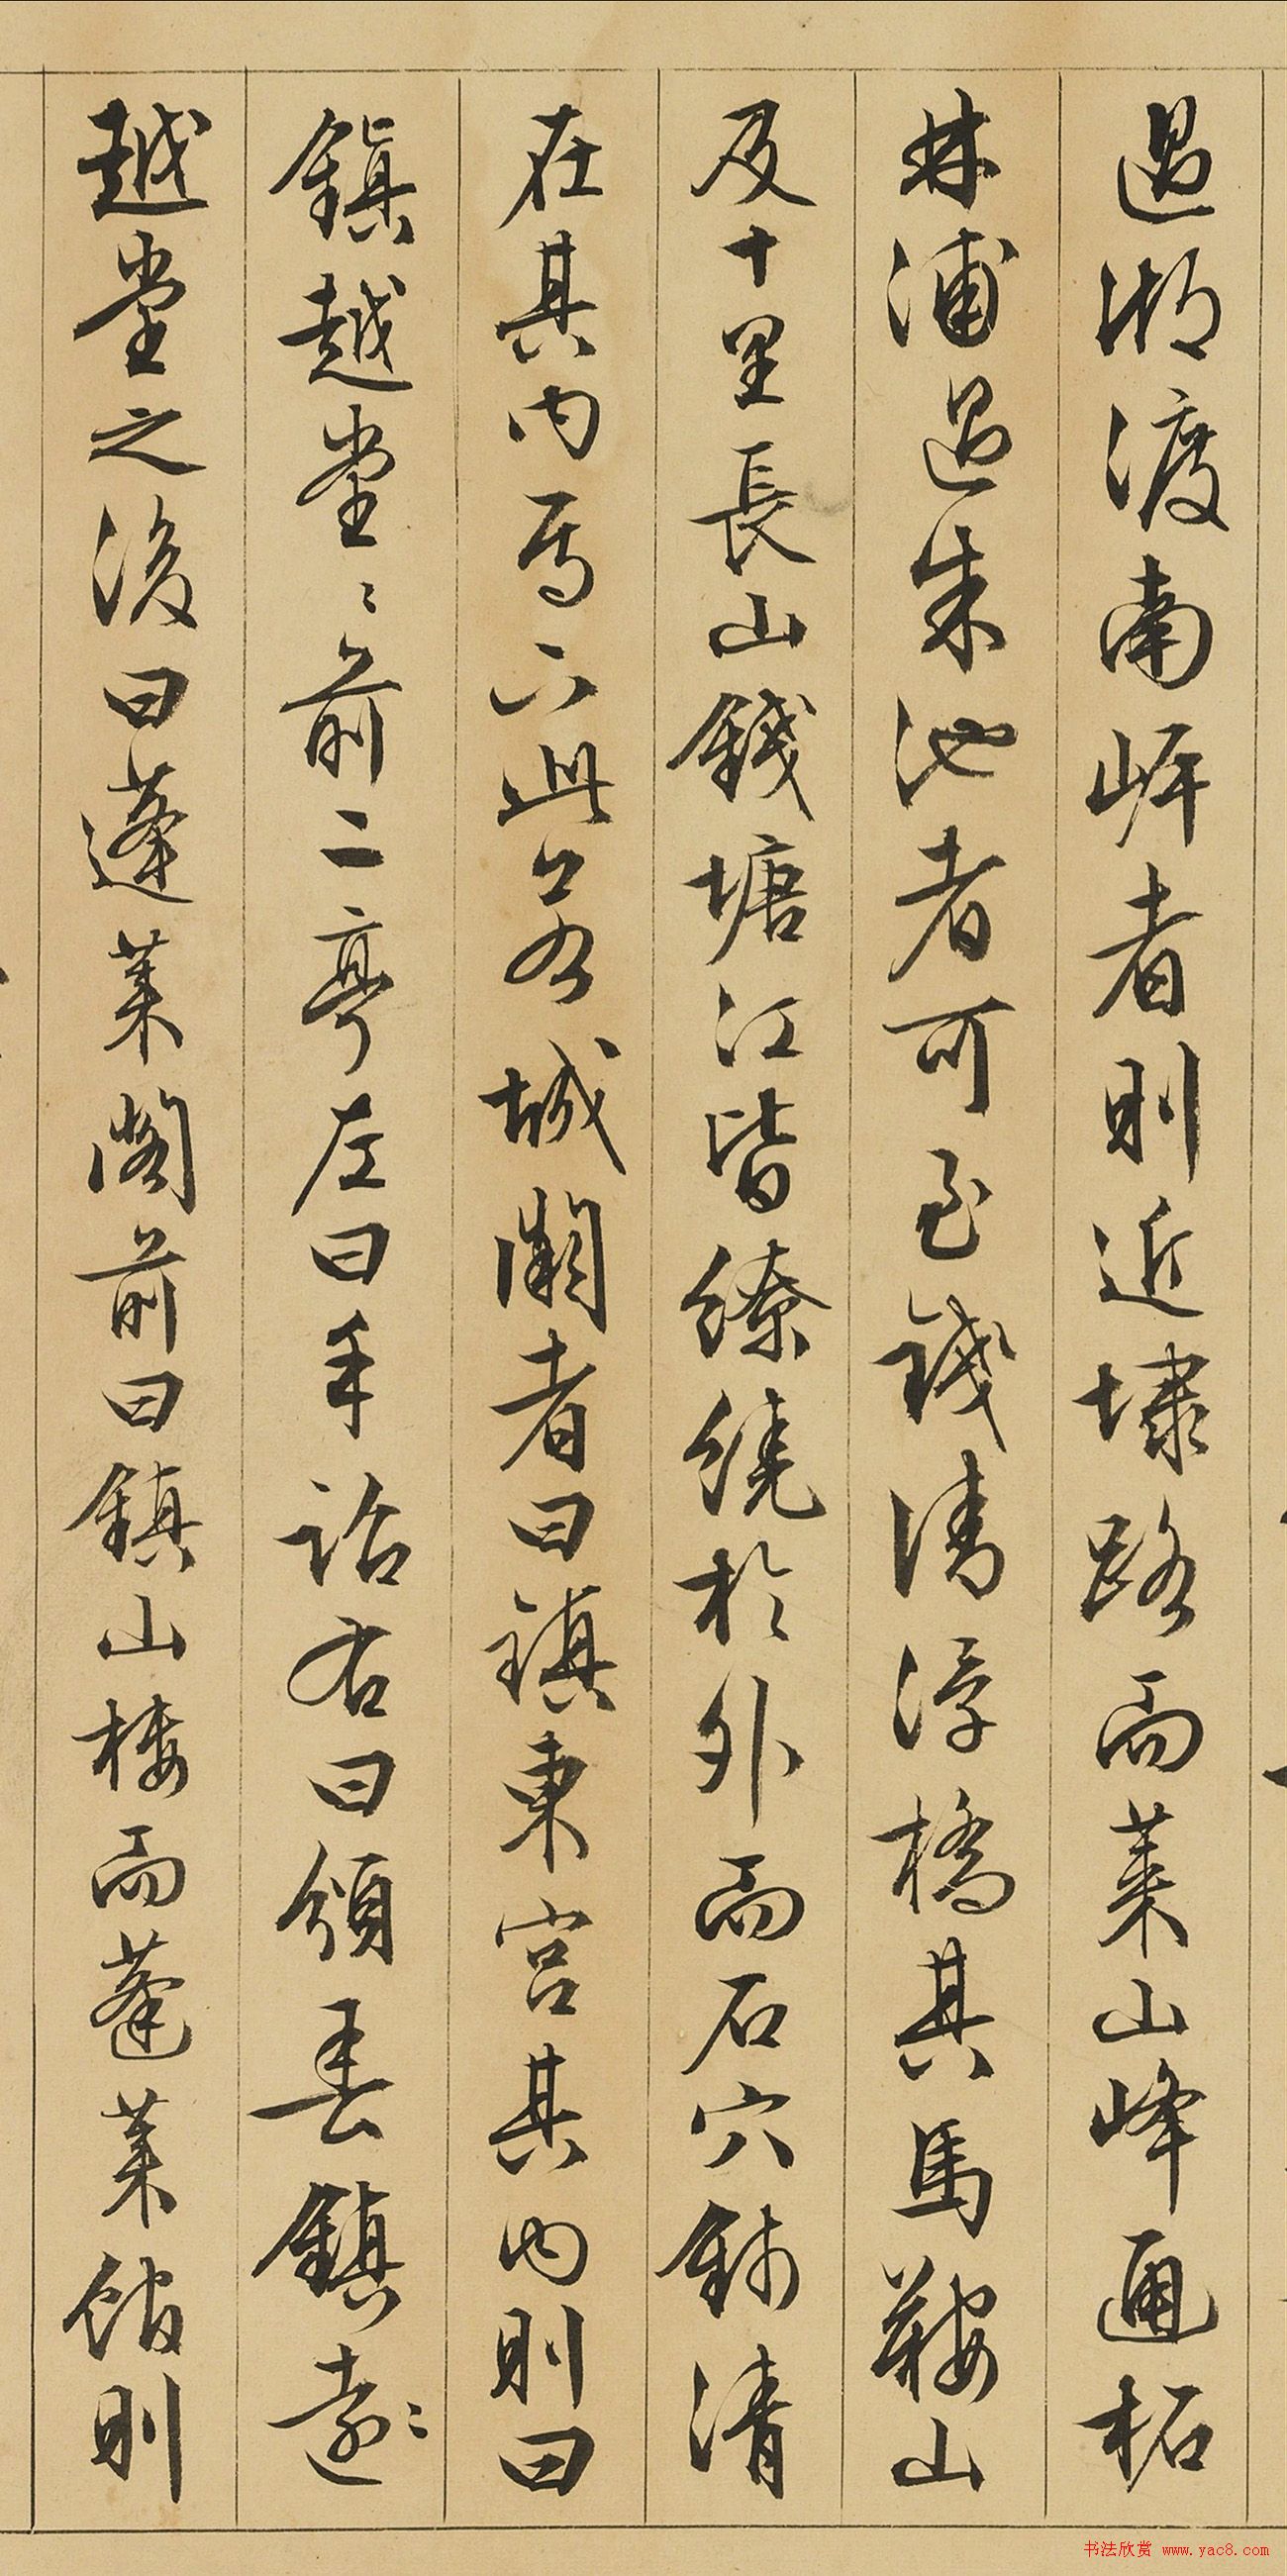 過湖渡南岸者則近埭路而萊山峰通柘
林浦過朱池者可至錢清浮橋其馬鞍山
及十里長山錢塘江皆繚繞於外而石穴錢清
在其内焉六此名城闕者曰鎮東宮其内則曰
鎮越堂〻前二亭左曰手詔右曰頒春鎮遠〻
越堂之後曰蓬萊閣前曰鎮山樓而蓬萊館則
书法欣赏 www.yac8.com